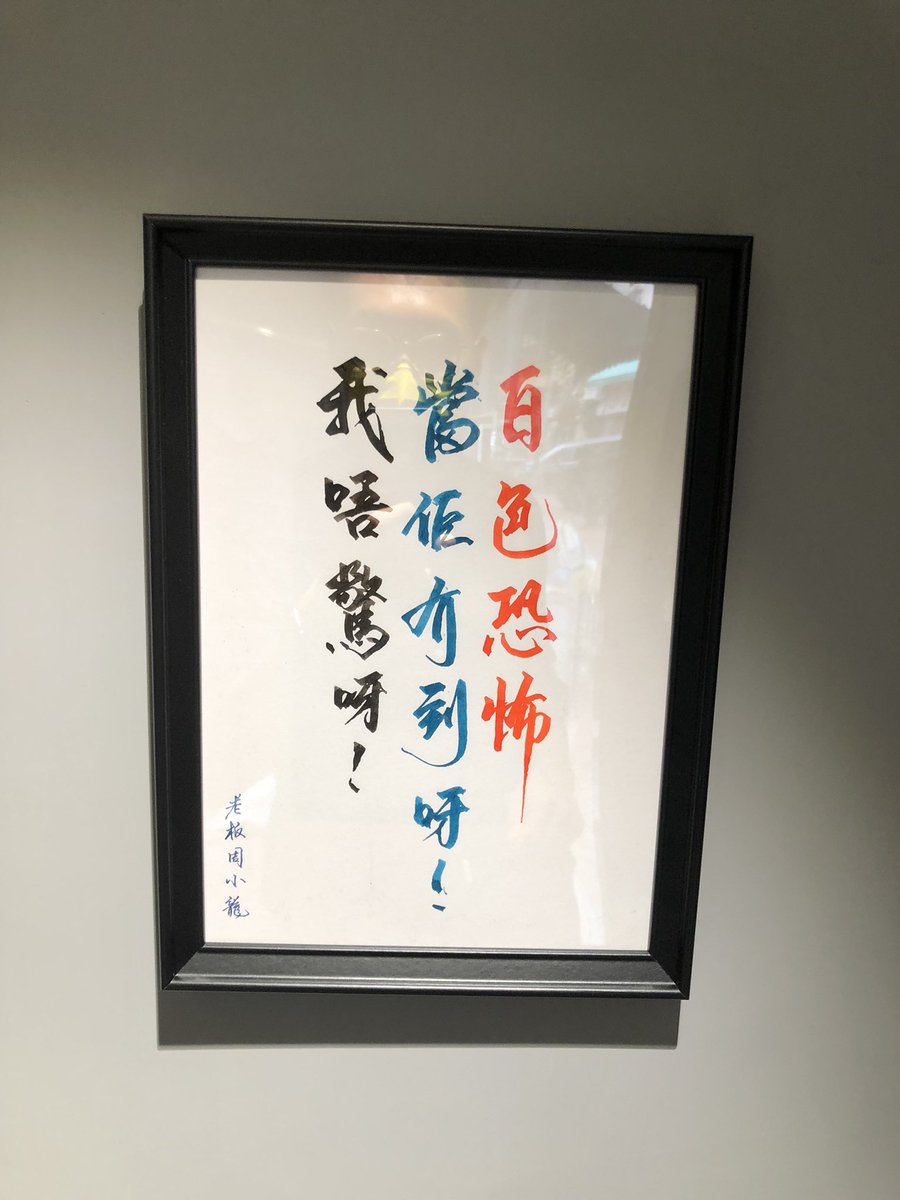 百色恐怖
當佢冇到呀！
我唔驚呀！
老板周小龍